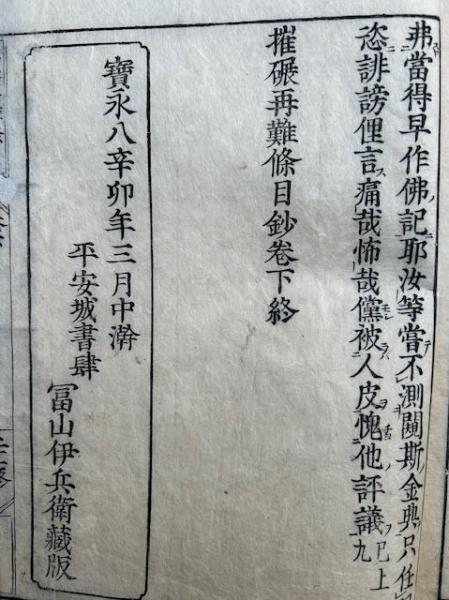 弗當得早作佛記耶汝等嘗不測闚斯金典只任
恣誹謗俚言痛哉怖哉儻被人皮愧他評議已上九
摧碾再難條目鈔卷下終
寶永八辛卯年三月中澣
平安城書肆
冨山伊兵衛藏版